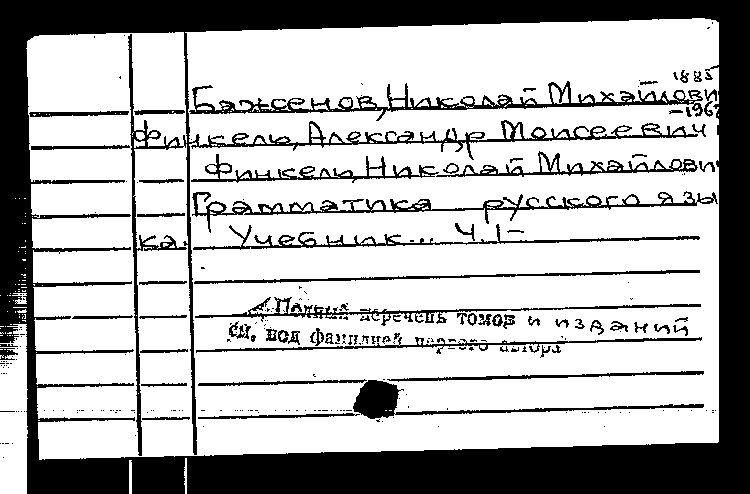 1885
Баженов, Николай Михайлови
-1962
Финкель, Александр Моисеевич
Финкель, Николай Михайлови
Грамматика русского язы
ка. Учебник... Ч.1-
Полный перечень томов и изданий
см. под фамилией первого автора